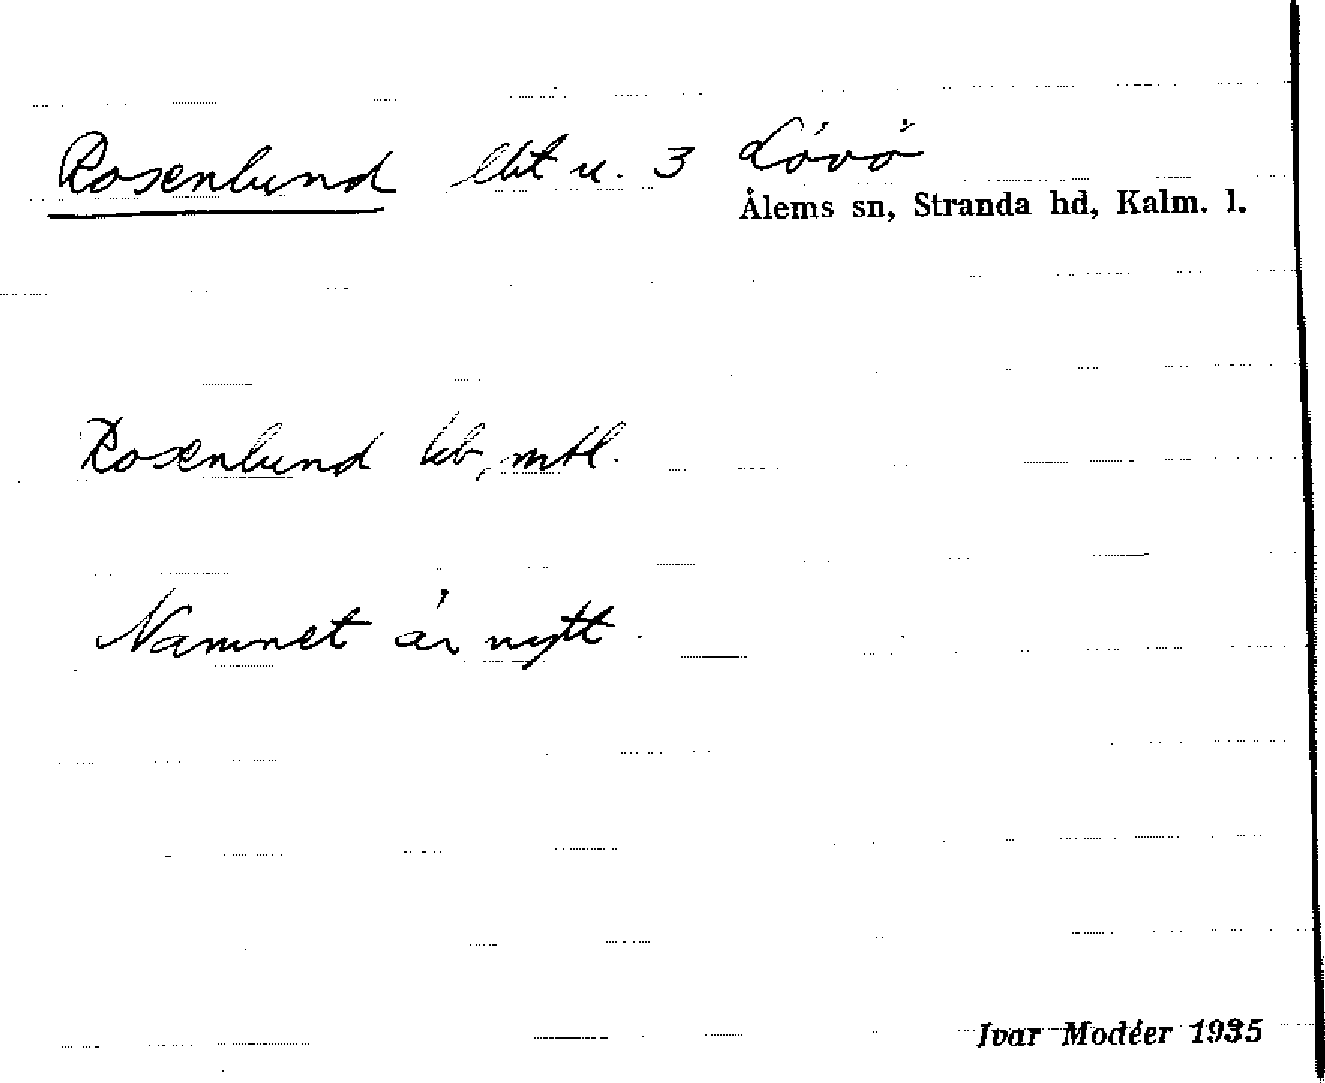 Rosenlund lht u. 3 Lövö
Ålems sn, Stranda hd, Kalm. l.
Rosenlund kb, mtl.
Namnet är nytt.
Ivar Modéer 1935